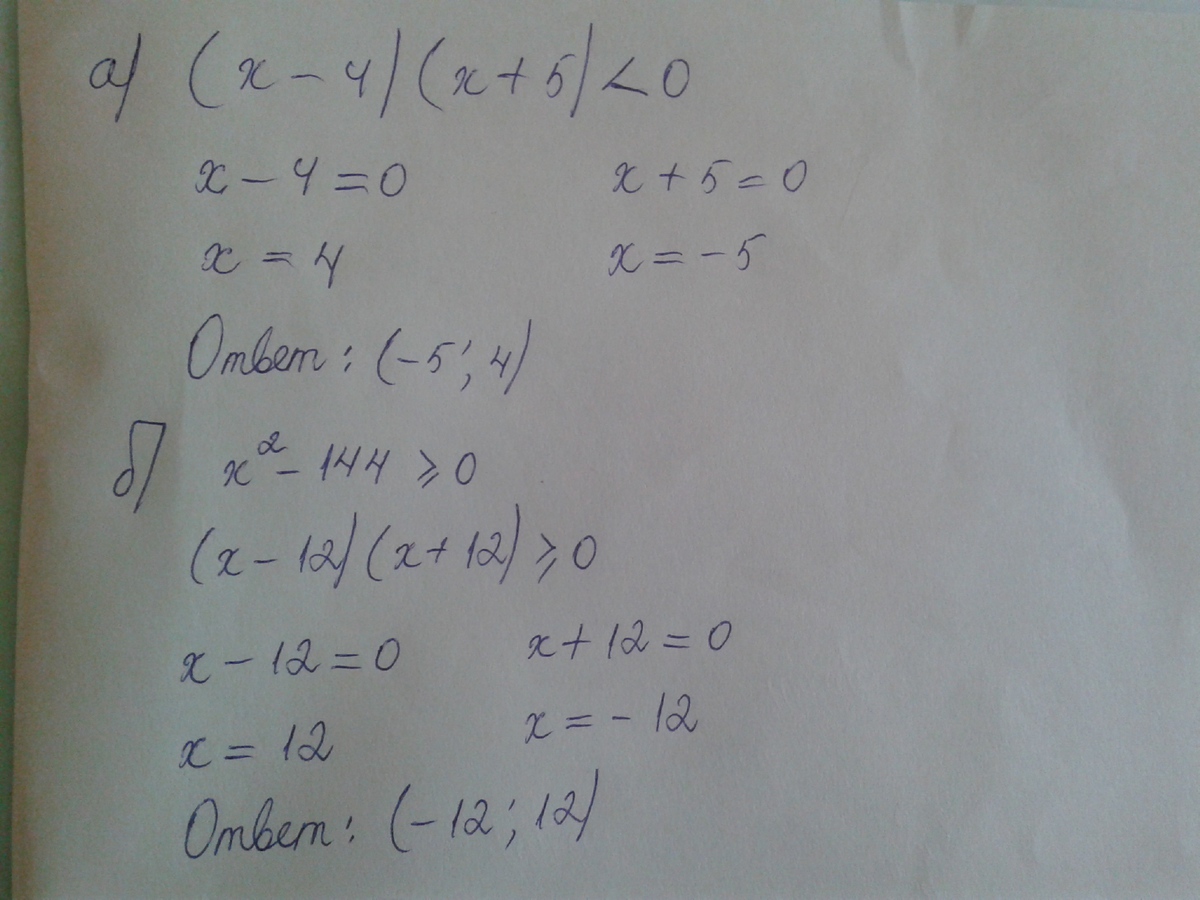 а) (x - 4)(x + 5) < 0
x - 4 = 0 x + 5 = 0
x = 4 x = -5
Ответ: (-5; 4)
б) x² - 144 ⩾ 0
(x - 12)(x + 12) ⩾ 0
x - 12 = 0 x + 12 = 0
x = 12 x = - 12
Ответ: (-12; 12)